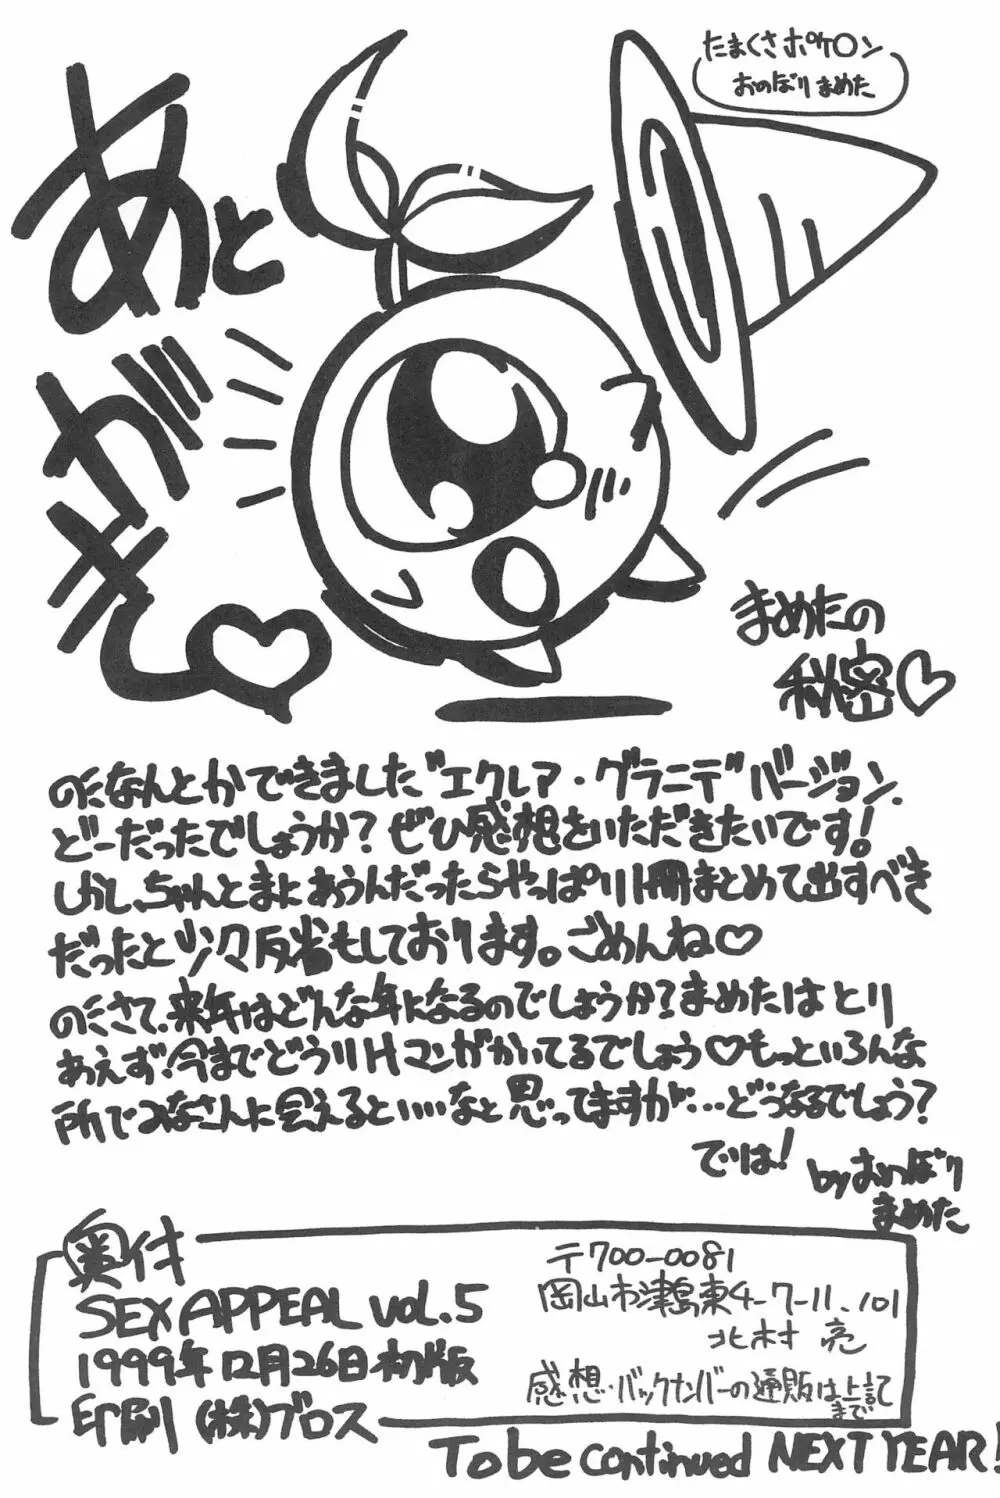 たまくさポケ○ン
おのぼりまめた
あとがき♡
まめたの
秘密♡
のぼなんとかできました"エクレア・グラニテ"バージョン、
どーだったでしょうか?ぜひ感想をいただきたいです!
しかし、ちゃんとまにあうんだったらやっぱり1冊まとめて出すべき
だったと少々反省もしております。ごめんね♡
さて、来年はどんな年になるのでしょうか?まめたはとり
あえず今までどうりHマンガかいてるでしょう♡もっといろんな
所でみなさんに会えるといいなと思ってますが…どうなるでしょう?
では!
byおのぼり
まめた
奥付
SEX APPEAL vol.5
1999年12月26日初版
印刷(株)ブロス
〒700-0081
岡山市津島東4-7-11、101
北村 亮
感想・バックナンバーの通販は上記
まで
To be continued NEXT YEAR!